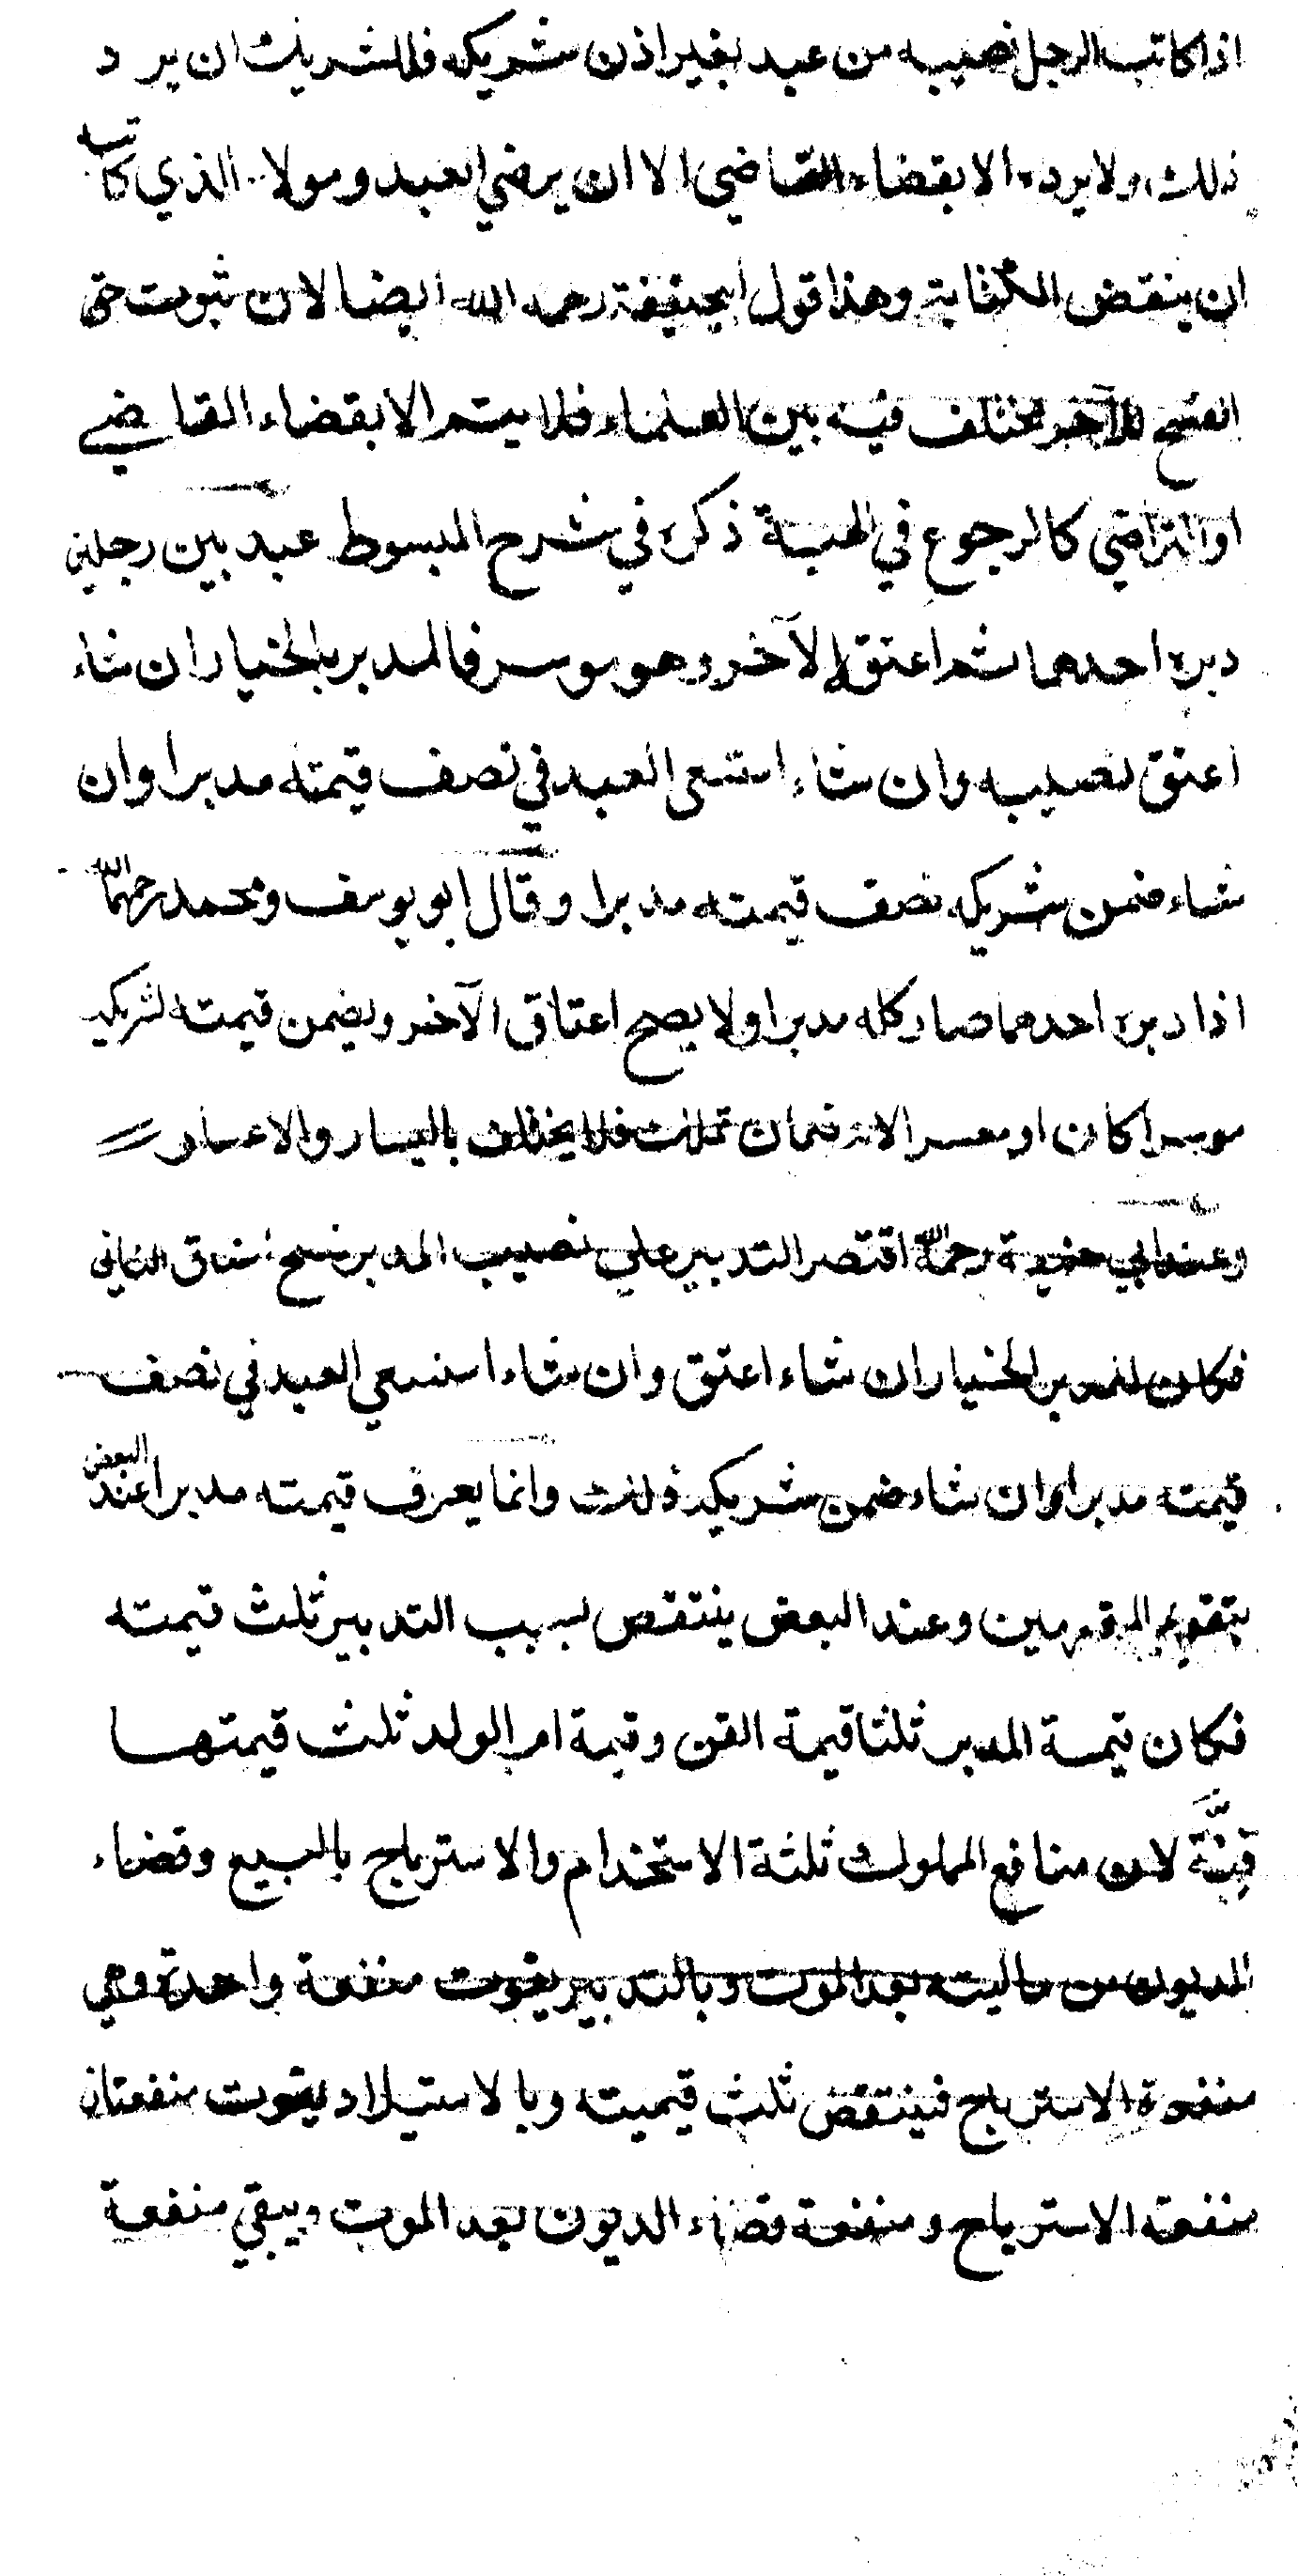 اذا كاتب الرجل نصيبه من عبد بغير اذن شريكه فللشريك ان يرد
ذلك ولا يرده الا بقضاء القاضي الا ان يرضي العبد ومولاه الذي كاتبه
ان ينقض الكتابة وهذا قول ابيحنيفة رحمه الله ايضا لان ثبوت حق
الفسخ للآخر مختلف فيه بين العلماء فلا يتم الا بقضاء القاضي
او التراضي كالرجوع في الهبة ذكره في شرح المبسوط عبد بين رجلين
دبره احدهما ثم اعتق الآخر وهو موسر فالمدبر بالخيار ان شاء
اعتق نصيبه وان شاء استسعى العبد في نصف قيمته مدبرا وان
شاء ضمن شريكه نصف قيمته مدبرا وقال ابو يوسف ومحمد رحمهما الله
اذا دبره احدهما صار كله مدبرا ولا يصح اعتاق الآخر ويضمن قيمته لشريكه
موسرا كان او معسرا لانه ضمان تملك فلا يختلف باليسار والاعسار
وعند ابي حنيفة رحمه الله اقتصر التدبير علي نصيب المدبر فصح اعتاق الثاني
فكان للمدبر الخيار ان شاء اعتق وان شاء استسعي العبد في نصف
قيمته مدبرا وان شاء ضمن شريكه ذلك وانما يعرف قيمته مدبرا عند البعض
بتقويم المقومين وعند البعض ينتقص بسبب التدبير ثلث قيمته
فكان قيمة المدبر ثلثا قيمة القن وقيمة ام الولد ثلث قيمتها
قِنَّة لان منافع المملوك ثلثة الاستخدام والاسترباح بالبيع وقضاء
الديون من ماليته بعد الموت وبالتدبير يفوت منفعة واحدة وهي
منفعة الاسترباح فينتقص ثلث قيميته وبالاستيلاد يفوت منفعتان
منفعة الاسترباح ومنفعة قضاء الديون بعد الموت ويبقي منفعة